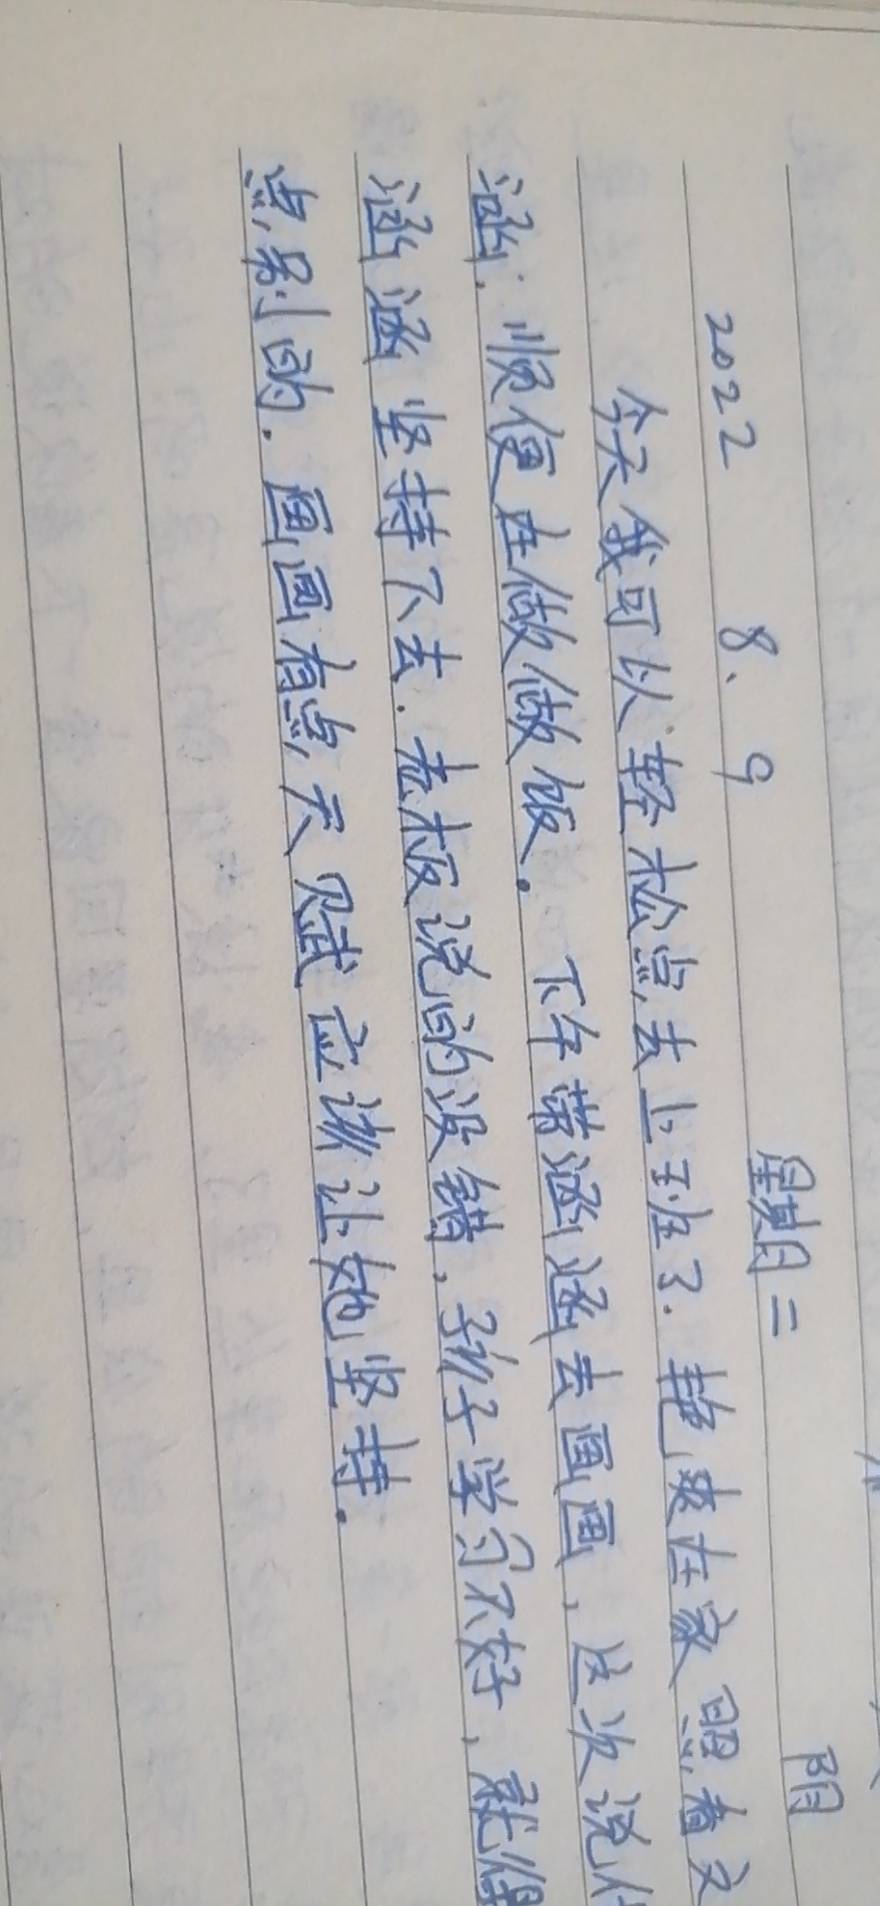 2022 8、9 星期二 阴
今天我可以轻松点去上班了.艳爽在家照看文
涵.顺便在做做饭。下午带涵涵去画画,这次说什
涵涵坚持下去.老板说的没错,孩子学习不好,就得
点别的.画画有点天赋应该让她坚持.